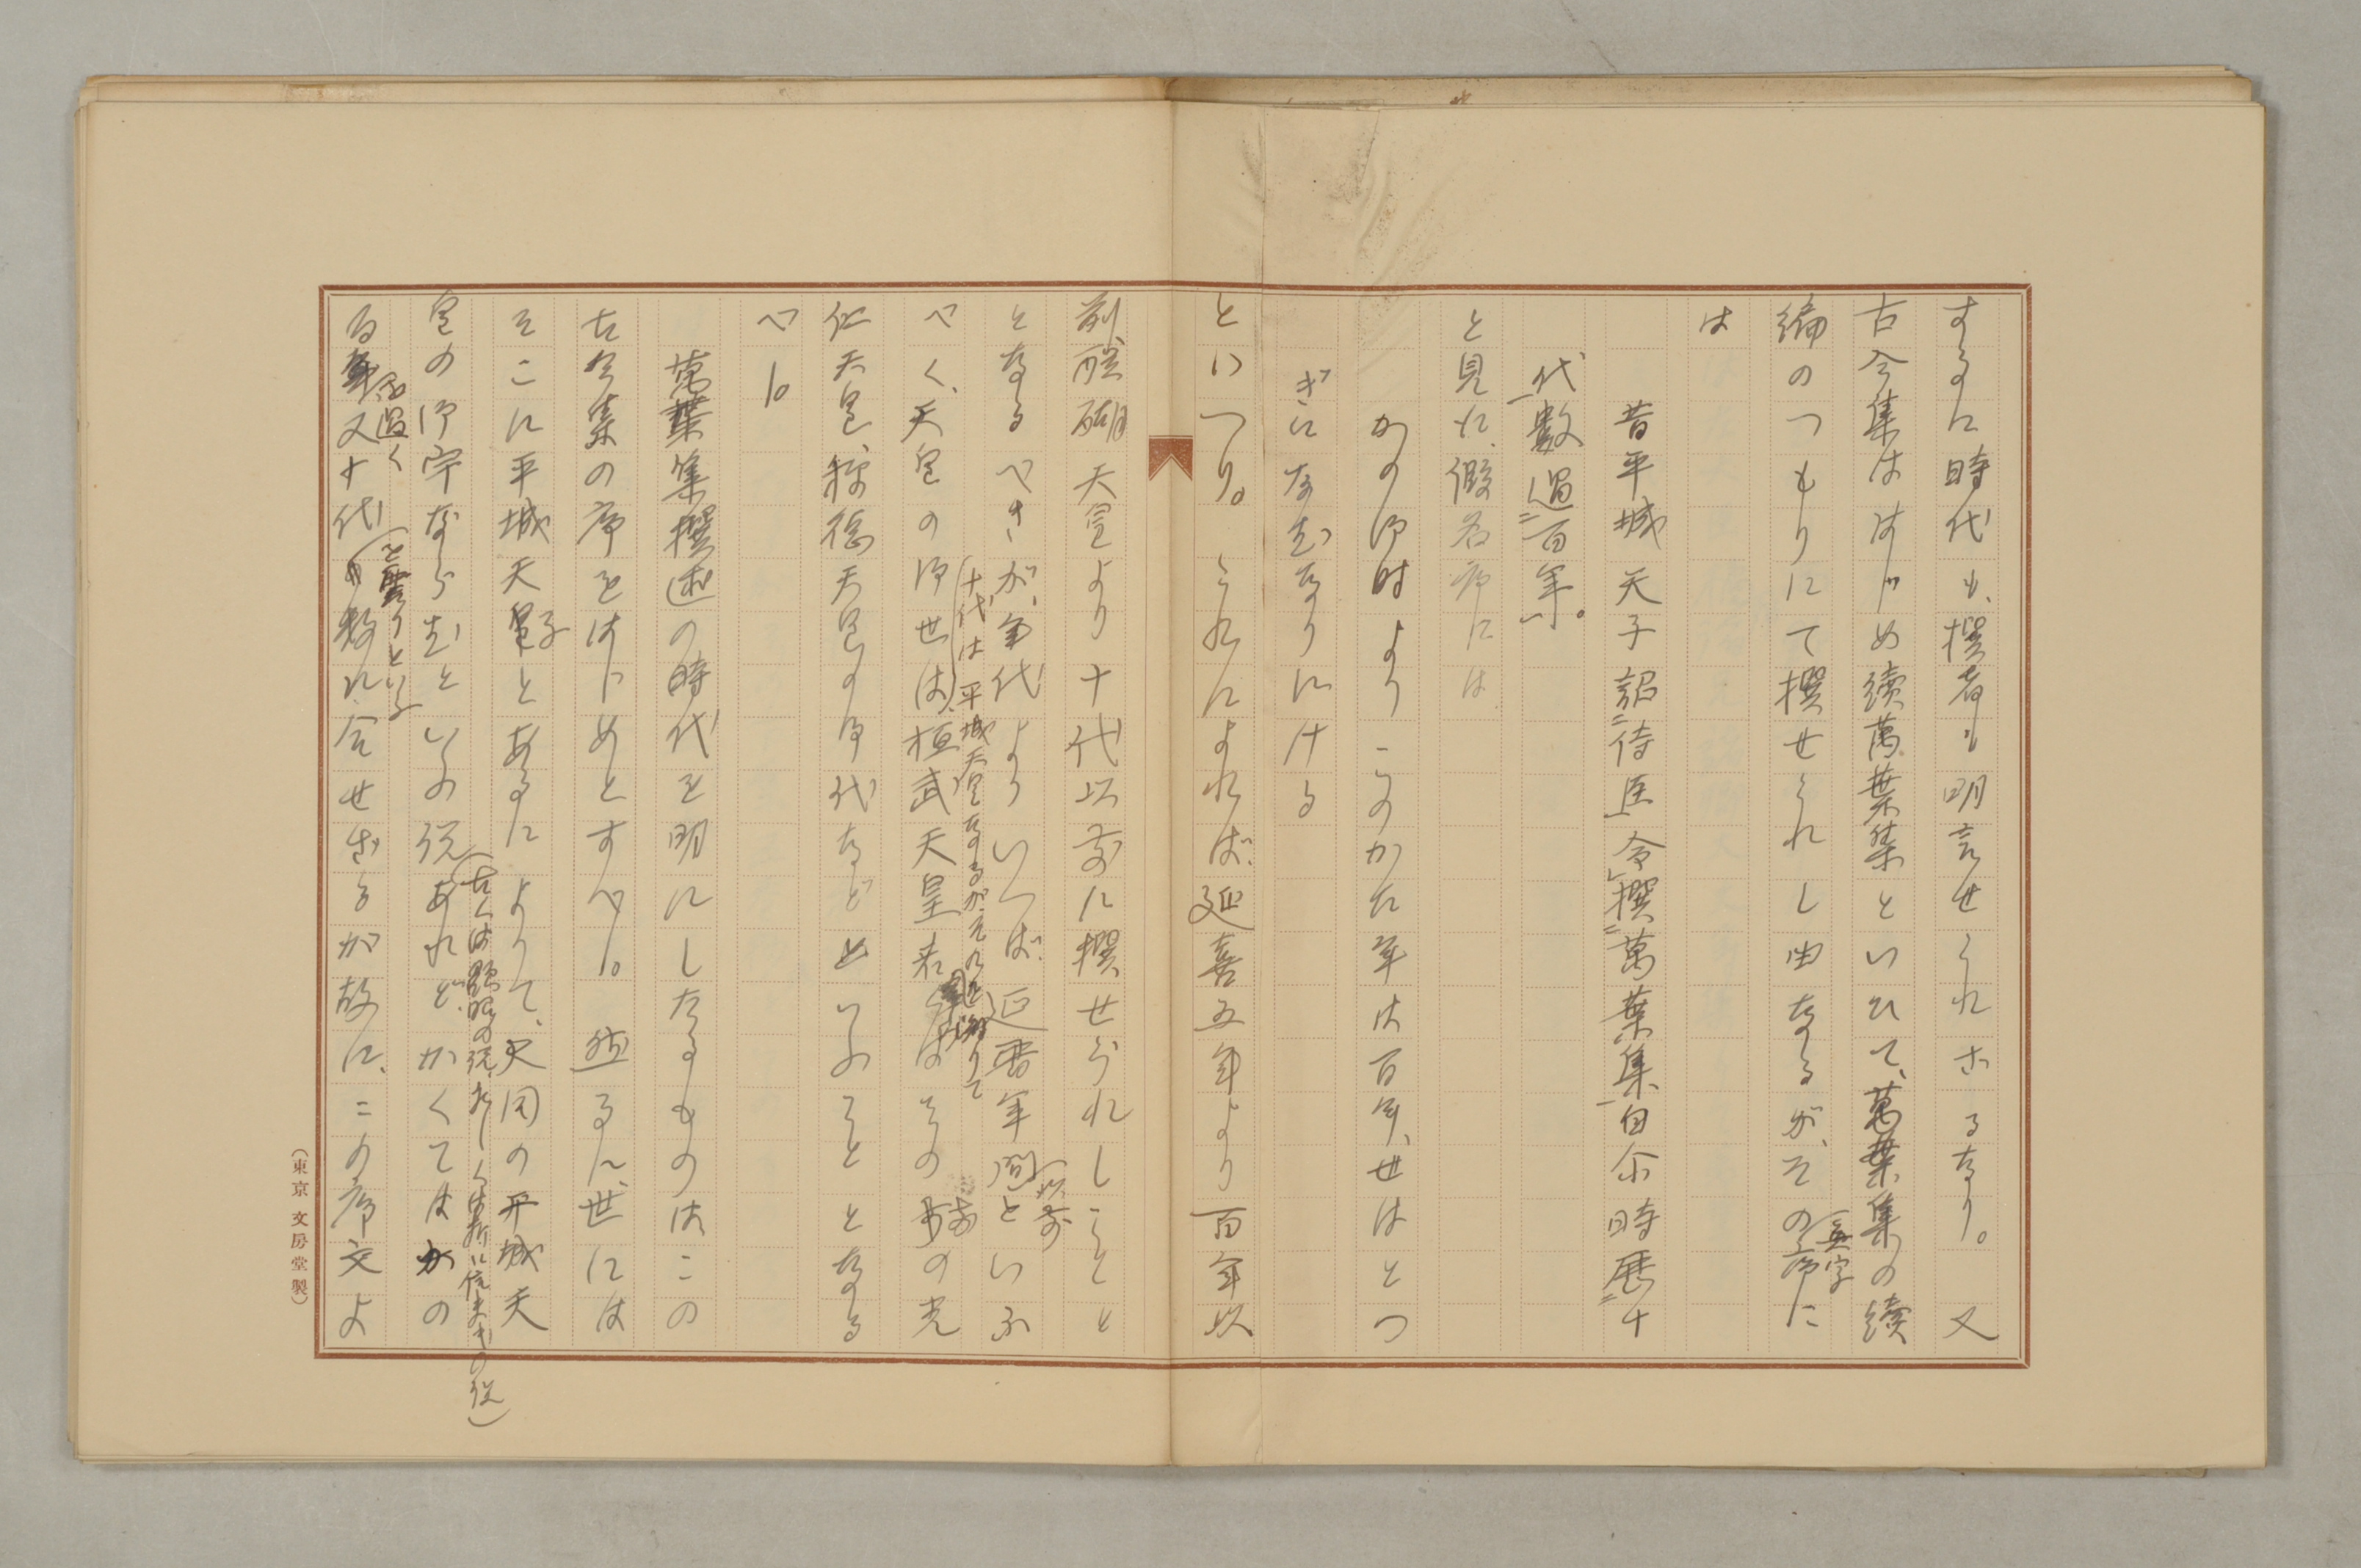 するに時代も、撰者も明言せられざるなり。又
古今集ははじめ續萬葉集といひて、萬葉集の續
編のつもりにて撰せられし由なるが、その眞字序に
は
昔平城天子詔ニ侍臣一令レ撰ニ萬葉集一自尓時歴ニ十
代一數過ニ百年一。
と見え、假名序には
かの御時よりこのかた年は百年、世はとつ
ぎになむなりにける
といへり。これによれば、延喜五年より百年以
前、醍醐天皇より十代以前に撰せられしことと
となるべきが、年代よりいへば、延暦年間以前といふ
べく、天皇の御世は、(十代は平城天皇なるがそれよりて)桓武天皇若くはその前の光
仁天皇、稱徳天皇の御代などといふこととなる
べし。
萬葉集撰述の時代を明にしたるものはこの
古今集の序をはじめとすべし。然るに、世には
そこに平城天子とあるによりて、大同の平城天
皇の御宇ならむといふ説あれど、(古くは顕昭の説、新しくは新に信夫氏の説)かくてはかの
百年を過ぐといふ又十代の数に合せざるが故に、この序文よ
(東京 文房堂製)